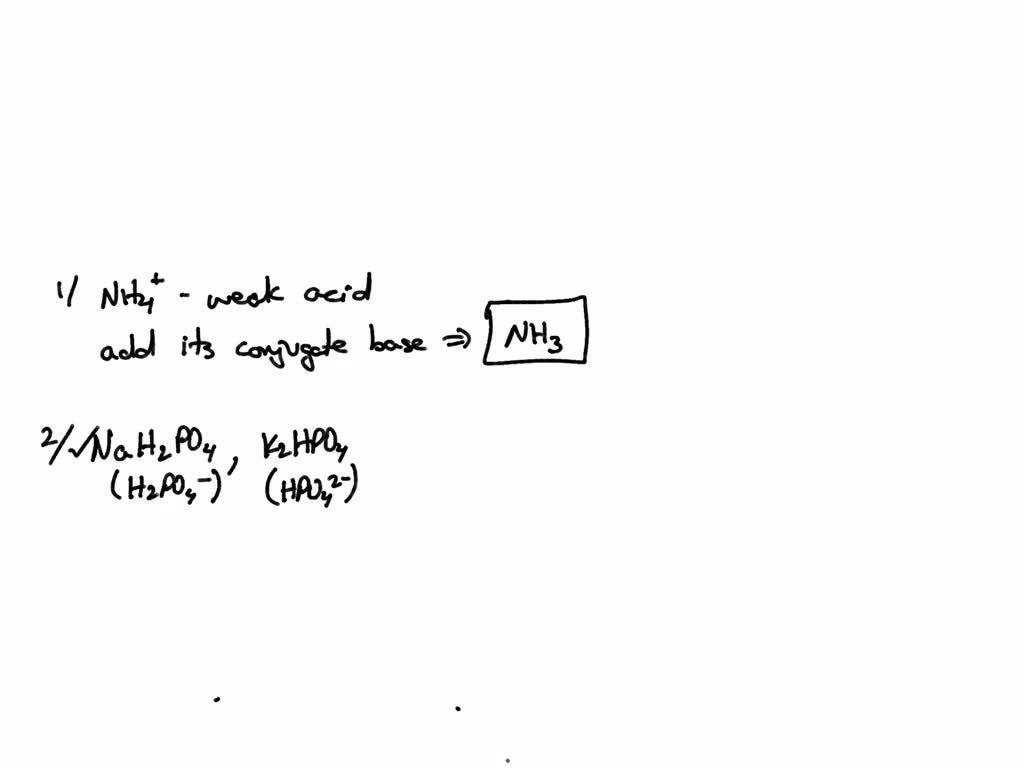 1/ NH₄⁺ - weak acid
add its conjugate base ⇒ NH₃
2/ ✓NaH₂PO₄, K₂HPO₄
(H₂PO₄⁻) (HPO₄²⁻)